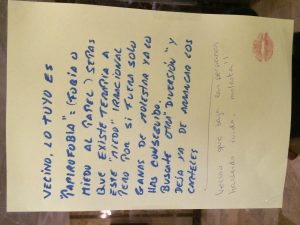 VECINO, LO TUYO ES
"PAPIROFOBIA" = (FOBIA O
MIEDO AL PAPEL) SEPAS
QUE EXISTE TERAPIA A
ESTE "MIEDO" IRRACIONAL
PERO POR SI FUERA SOLO
GANAS DE MOLESTAR YA LO
HAS CONSEGUIDO.
BUSCATE OTRA "DIVERSIÓN" Y
DEJA YA DE ARRANCAR LOS
CARTELES
haciendo ruido